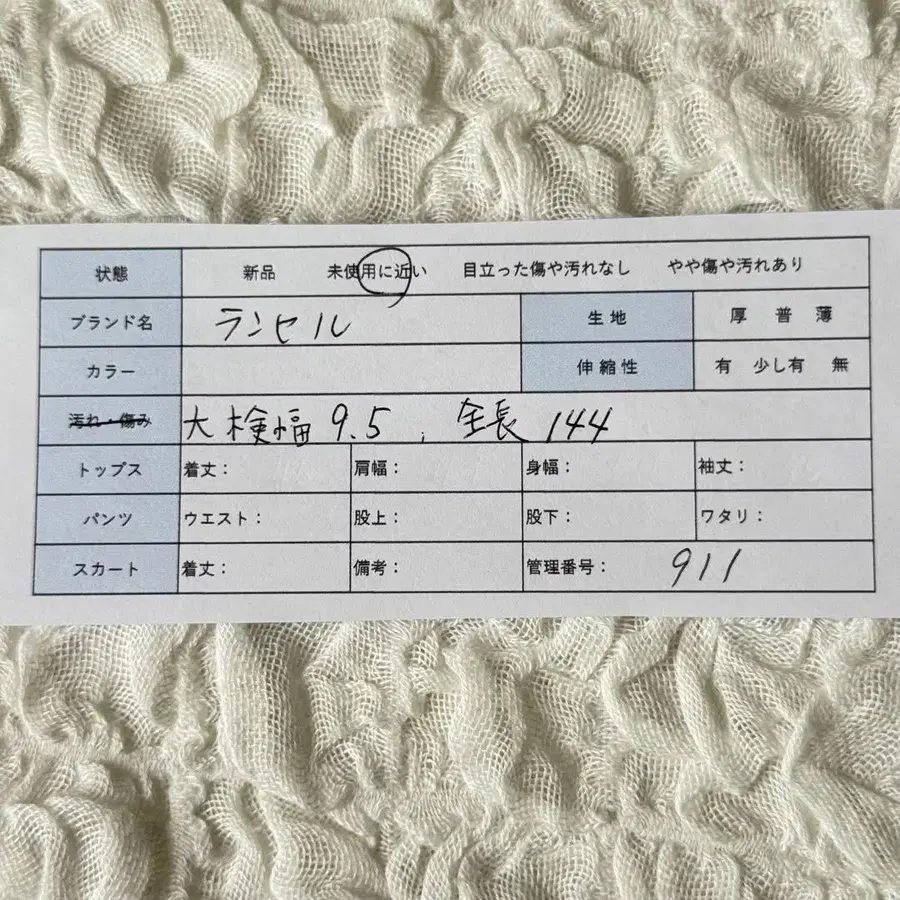 状態 新品 未使用に近い 目立った傷や汚れなし やや傷や汚れあり
ブランド名 ランセル 生地 厚 普 薄
カラー 伸縮性 有 少し有 無
汚れ・傷み 大検幅 9.5 , 全長 144
トップス 着丈: 肩幅: 身幅: 袖丈:
パンツ ウエスト: 股上: 股下: ワタリ:
スカート 着丈: 備考: 管理番号: 911